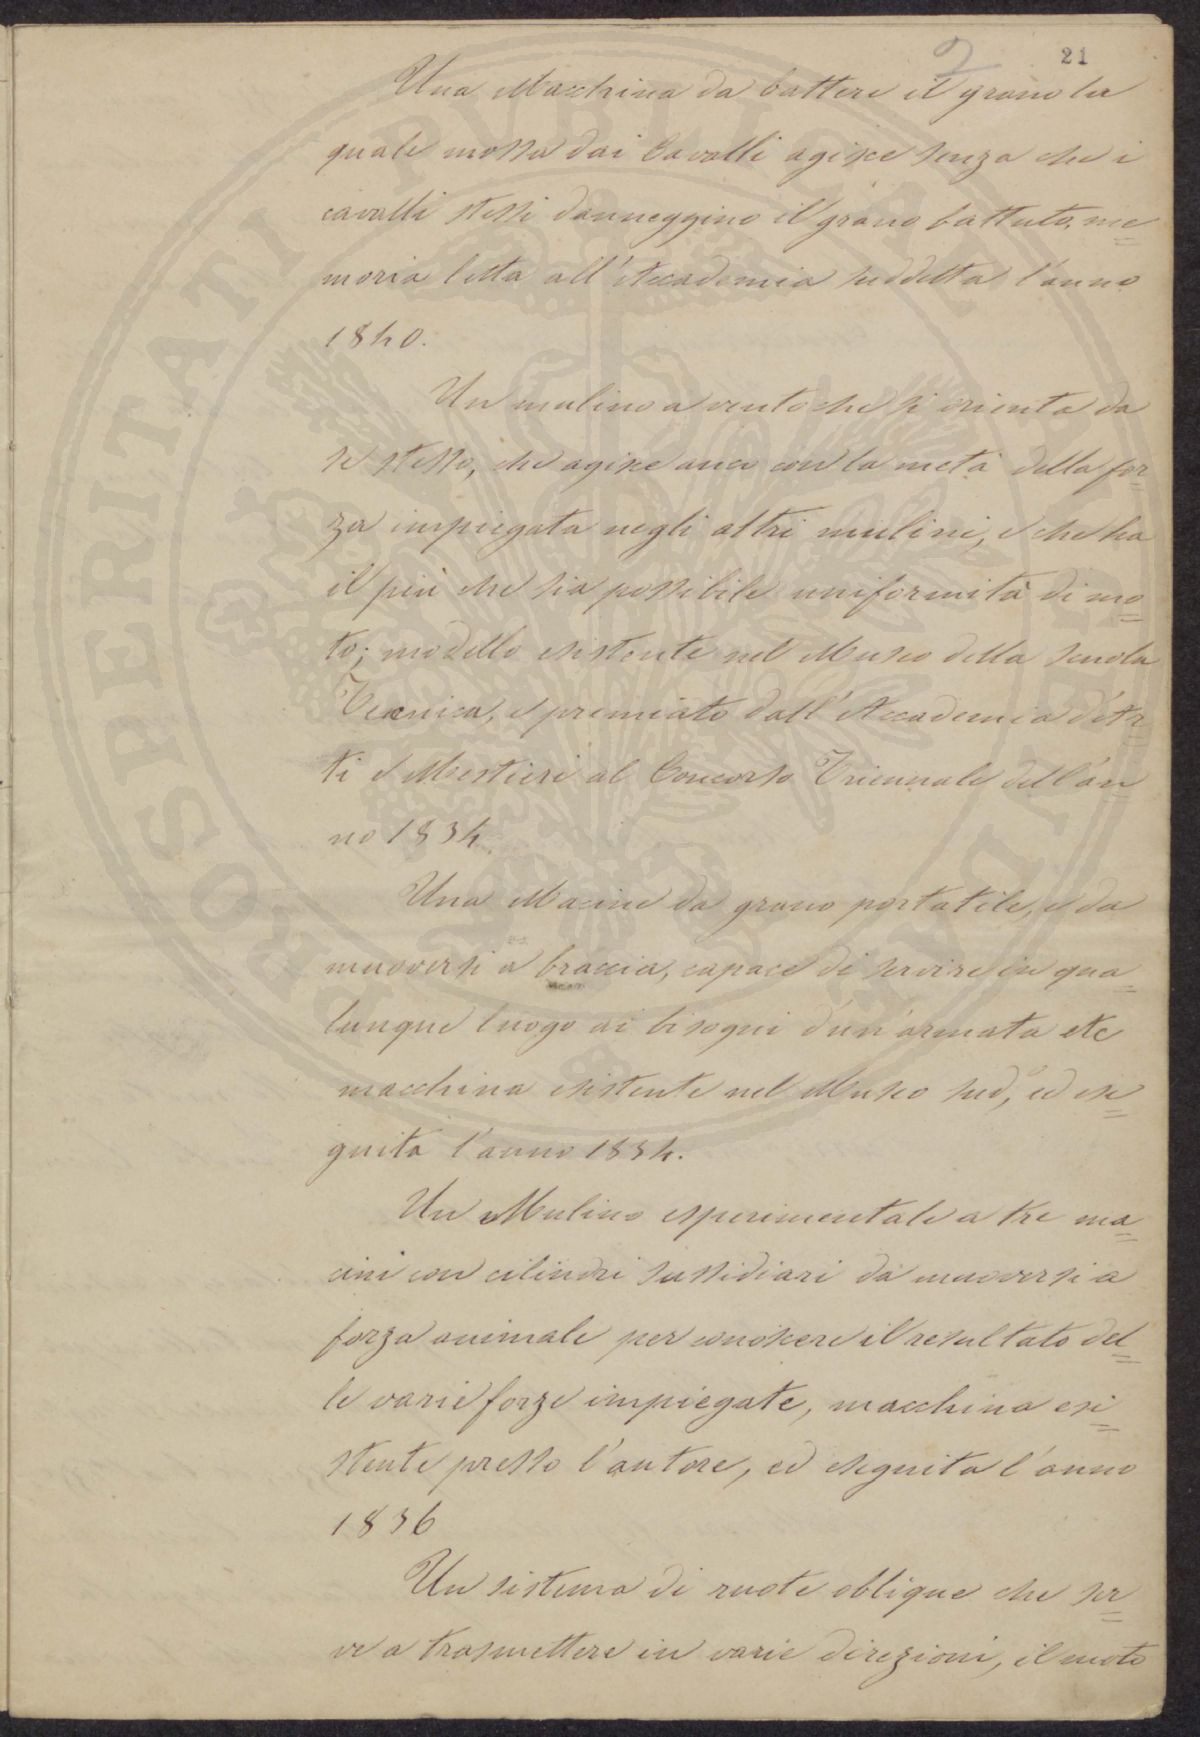 2
21
Una Macchina da battere il grano la
quale mossa dai Cavalli agisce senza che i
cavalli stessi danneggino il grano battuto, me=
moria letta all'Accademia suddetta l'anno
1840.
Un mulino a vento che si orienta da
se stesso, che agisce anco con la metà della for=
za impiegata negli altri mulini, e che ha
il più che sia possibile uniformità di mo=
to; modello esistente nel Museo della scuola
Tecnica, e premiato dall'Accademia d'Ar=
ti e Mestieri al Concorso Triennale dell'an
no 1834.
Una Macine da grano portatile, e da
muoversi a braccia, capace di servire in qua=
lunque luogo ai bisogni d'un'armata etc
macchina esistente nel Museo sud, ed ese=
guita l'anno 1834.
Un Mulino esperimentale a tre ma=
cini con cilindri sussidiari da muoversi a
forza animale per conoscere il resultato del=
le varie forze impiegate, macchina esi=
stente presso l'autore, ed eseguita l'anno
1836
Un sistema di ruote oblique che ser=
ve a trasmettere in varie direzioni, il moto
PROSPERITATI PUBLICAE